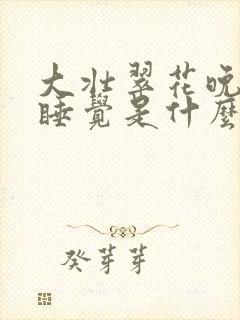 大壮翠花晚
睡覺是什麼
癸芽芽